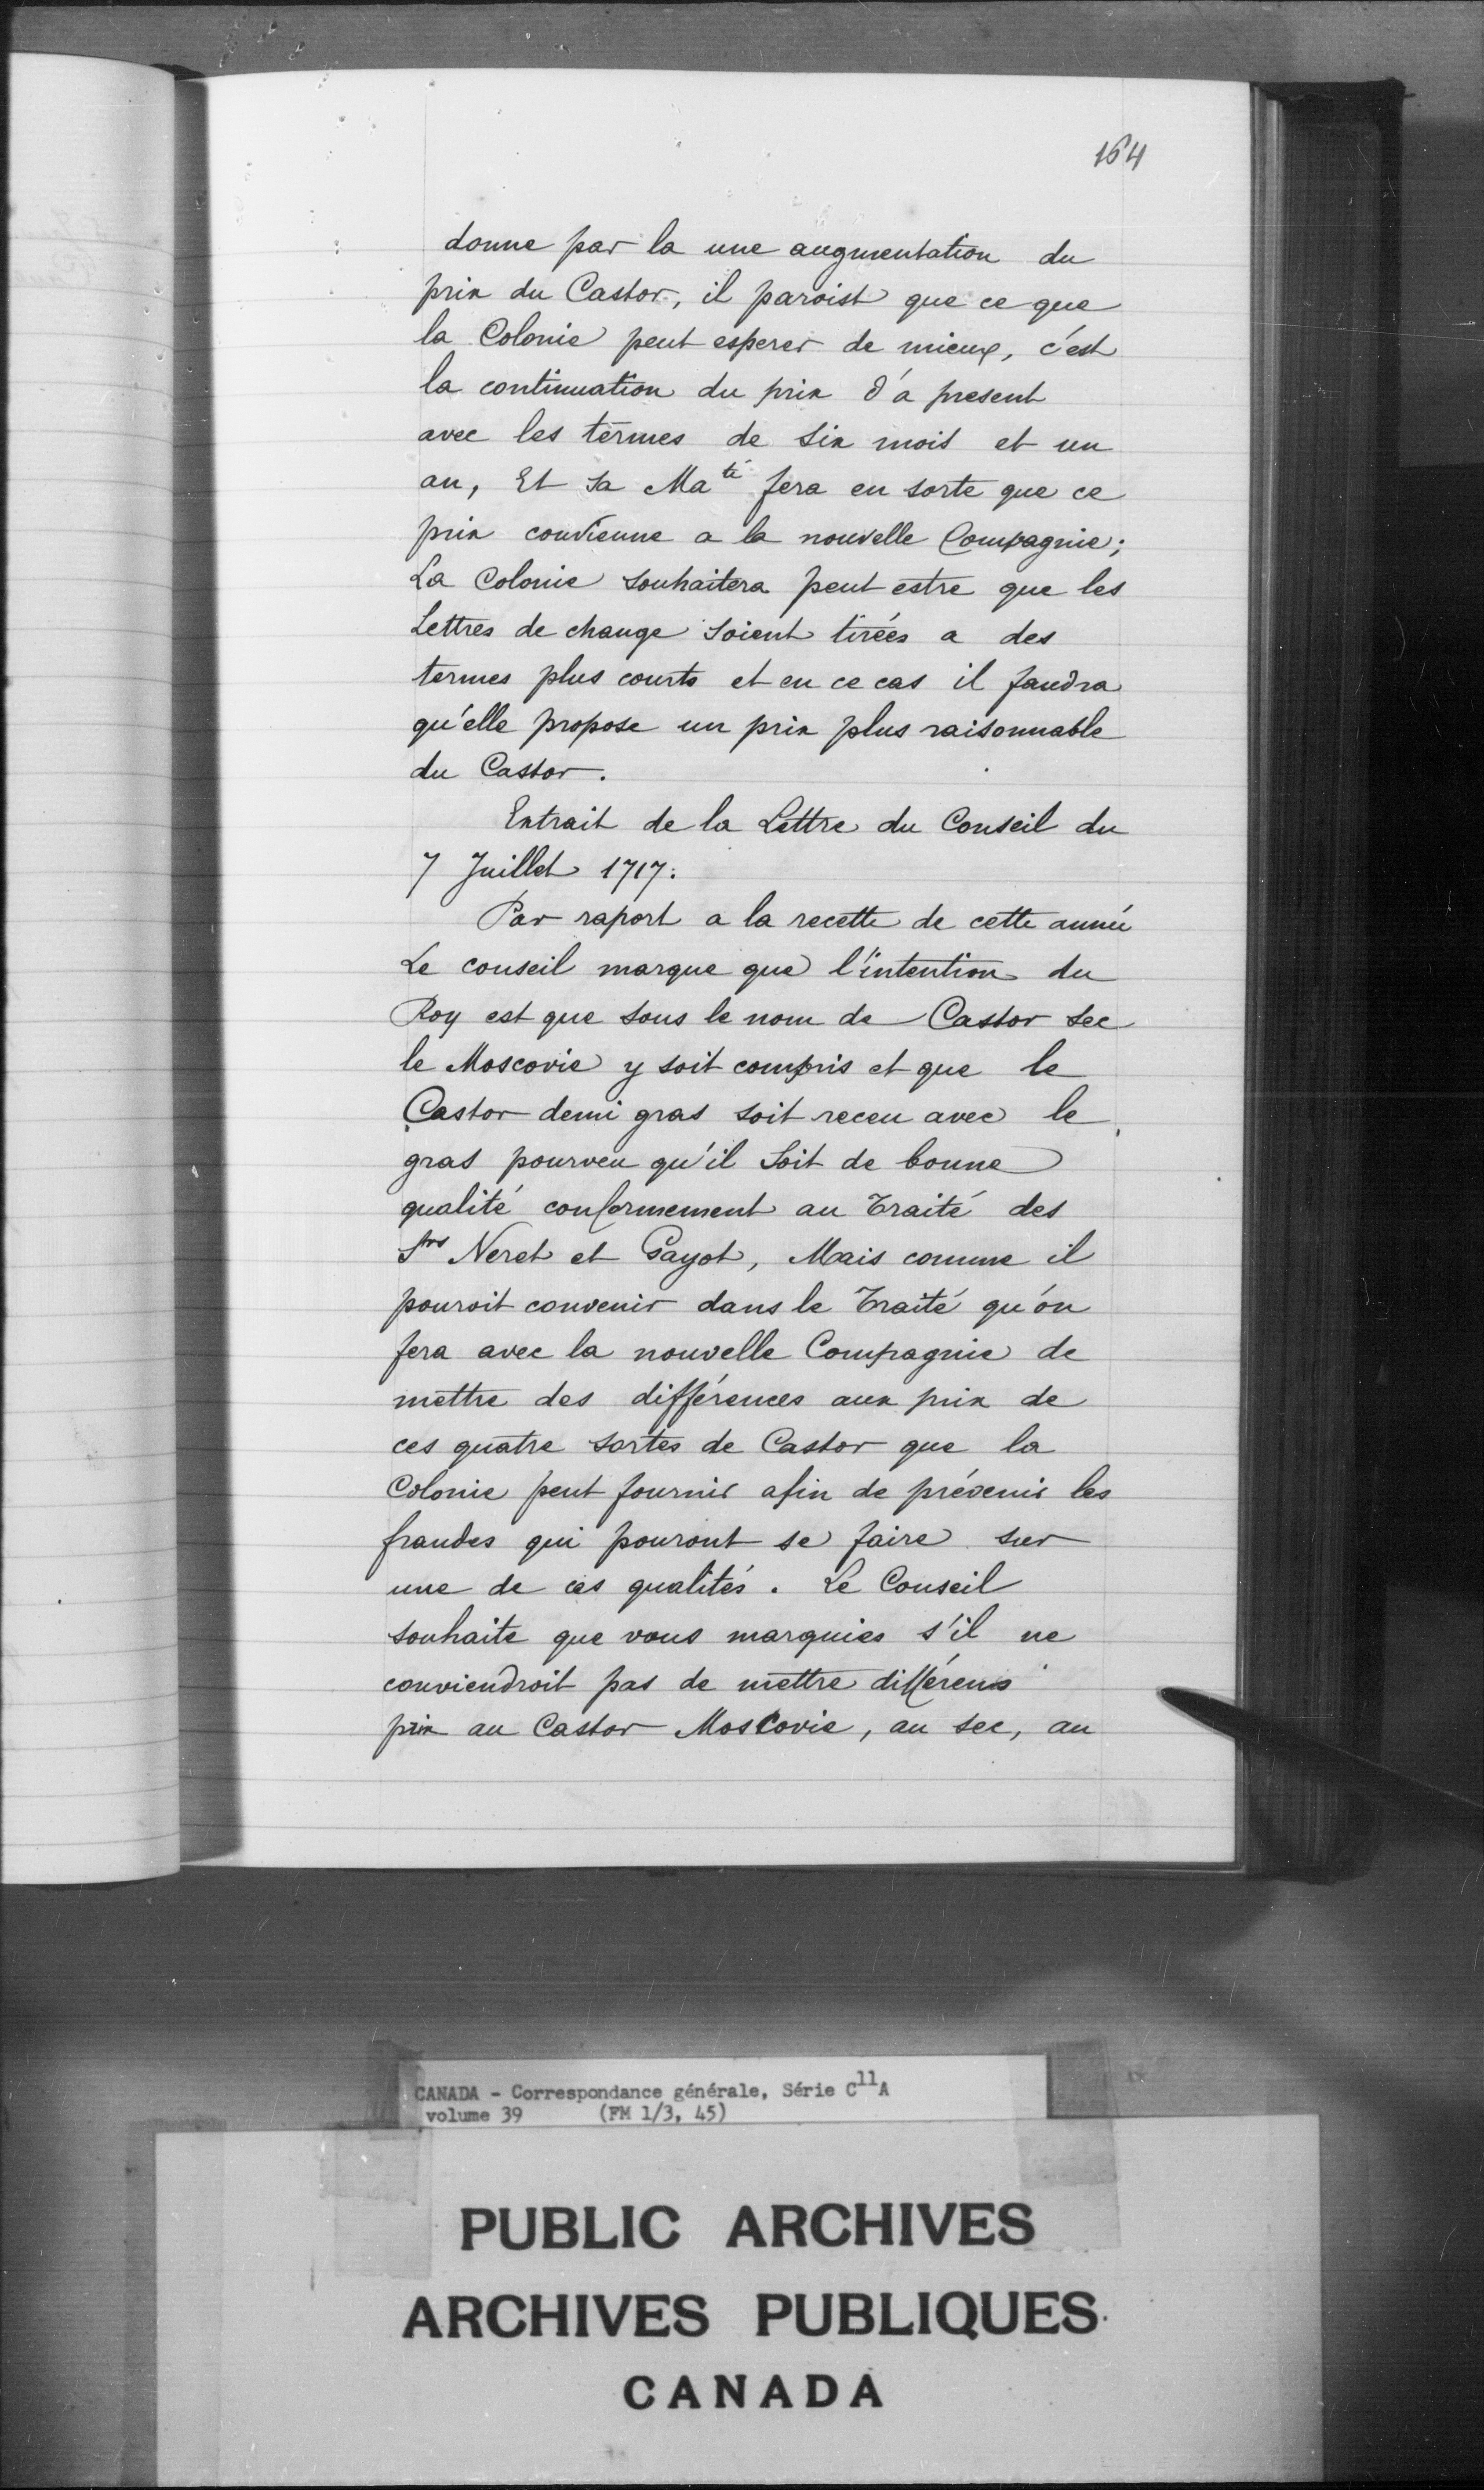 164
donne par la une augmentation du
prix du Castor, il paroist que ce que
la Colonie peut esperer de mieux, c'est
la continuation du prix d'a present
avec les termes de six mois et un
an, Et sa Ma té fera en sorte que ce
prix convienne a la nouvelle Compagnie;
La Colonie souhaitera peut estre que les
Lettres de change soient tirées a des
termes plus courts et en ce cas il faudra
qu'elle propose un prix plus raisonnable
du Castor.
Extrait de la Lettre du Conseil du
7 Juillet 1717.
Par raport a la recette de cette année
Le conseil marque que l'intention du
Roy est que sous le nom de Castor sec
le Moscovie y soit compris et que le
Castor demi gras soit receu avec le
gras pourveu qu'il soit de bonne
qualité conformement au Traité des
Srs Neret et Gayot, Mais comme il
pouroit convenir dans le Traité qu'on
fera avec la nouvelle Compagnie de
mettre des différences aux prix de
ces quatre sortes de Castor que la
Colonie peut fournir afin de prévenir les
fraudes qui pouront se faire sur
une de ces qualités. Le Conseil
souhaite que vous marquies s'il ne
conviendroit pas de mettre différens
prix au Castor Moscovie, au sec, au
CANADA - Correspondance générale, Série C11A
volume 39 (FM 1/3, 45)
PUBLIC ARCHIVES
ARCHIVES PUBLIQUES
CANADA